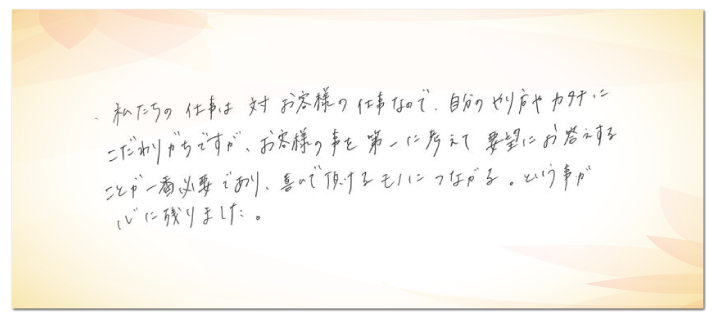 ・私たちの仕事は 対 お客様の仕事なので、自分のやり方やカタチに
こだわりがちですが、お客様の事を第一に考えて 要望にお答えする
ことが一番必要であり、喜んで頂けるモノにつながる。という事が
心に残りました。